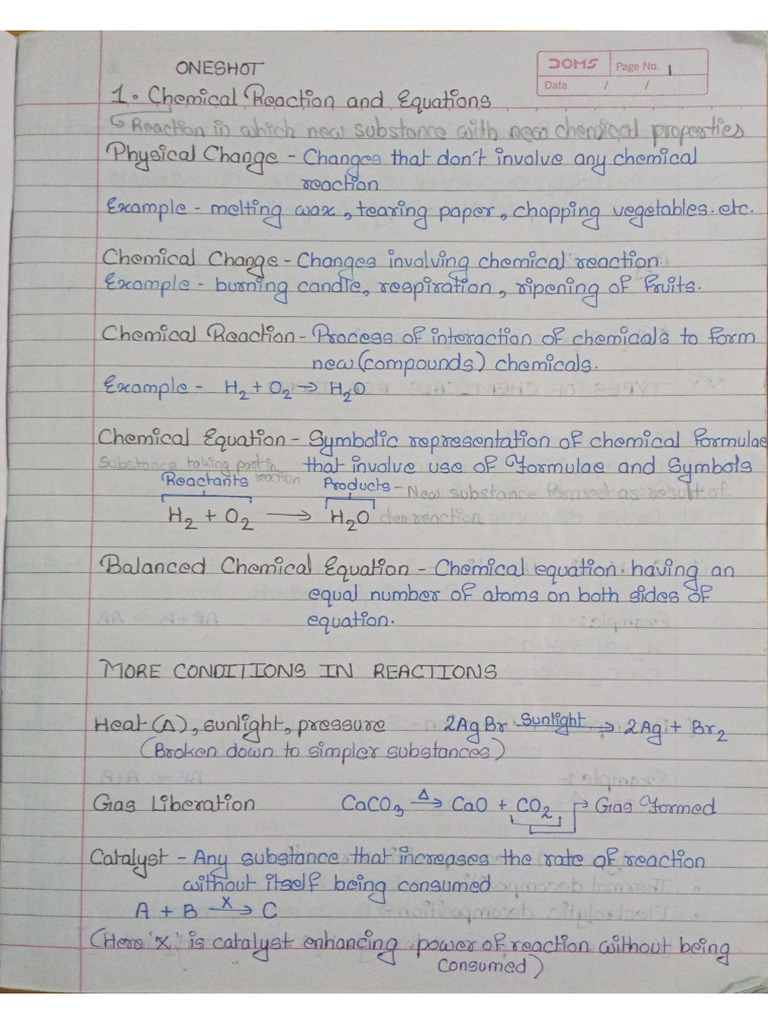 ONESHOT
DOMS Page No. 1
Date / /
1. Chemical Reaction and Equations
↳ Reaction in which new substance with new chemical properties
Physical Change - Changes that don't involve any chemical
reaction
Example - melting wax, tearing paper, chopping vegetables. etc.
Chemical Change - Changes involving chemical reaction.
Example - burning candle, respiration, ripening of fruits.
Chemical Reaction - Process of interaction of chemicals to form
new (compounds) chemicals.
Example - H₂ + O₂ → H₂O
Chemical Equation - Symbolic representation of chemical formulae
that involve use of Formulae and Symbols
Substance taking part in reaction
Reactants Products - New substance formed as result of
H₂ + O₂ → H₂O reaction
Balanced Chemical Equation - Chemical equation. having an
equal number of atoms on both sides of
equation.
MORE CONDITIONS IN REACTIONS
Heat (Δ), sunlight, pressure 2AgBr Sunlight → 2Ag + Br₂
(Broken down to simpler substances)
Gas Liberation CaCO₃ Δ → CaO + CO₂ → Gas Formed
Catalyst - Any substance that increases the rate of reaction
without itself being consumed
A + B X → C
(Here 'X' is catalyst enhancing power of reaction without being
consumed)